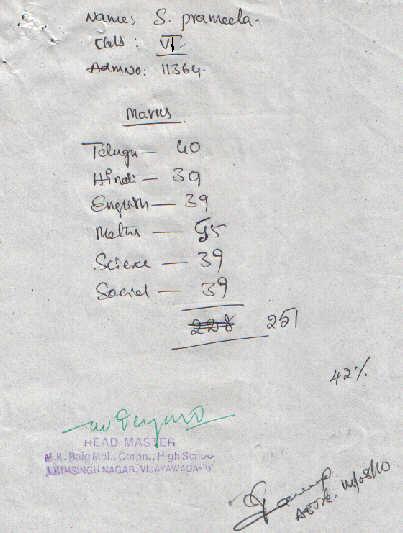 Name: S. prameela.
Class : VI
Adm No: 11364.
Marks
Telugu — 40
Hindi — 39
English — 39
Maths — 55
Science — 39
Social — 39
228 251
42%
HEAD MASTER
M.K. Baig Mpl. Corpn., High School
AJITHSINGH NAGAR, VIJAYAWADA